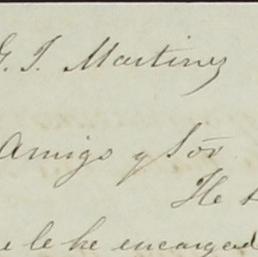 G. T. Martinez
Amigo y Sór
He
le he encargad